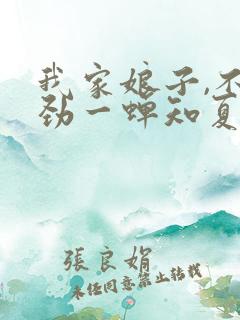 我家娘子,不
劲一蝉知夏
張良娟
未经同意禁止转载